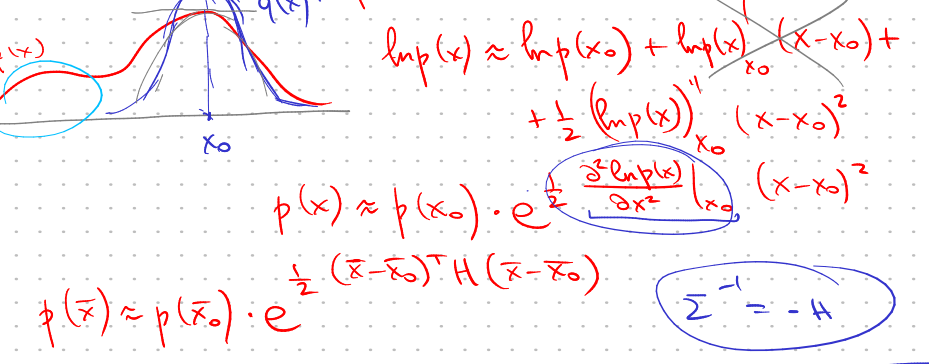 q(x)
(x)
x₀
ln p(x) ≈ ln p(x₀) + ln p(x)'|ₓ₀ (x-x₀) +
+ 1/2 (ln p(x))''ₓ₀ (x-x₀)²
p(x) ≈ p(x₀) · e^{1/2 ∂² ln p(x)/∂x² |ₓ₀ (x-x₀)²}
p(x̄) ≈ p(x̄₀) · e^{1/2 (x̄-x̄₀)ᵀ H (x̄-x̄₀)}
Σ⁻¹ = -H